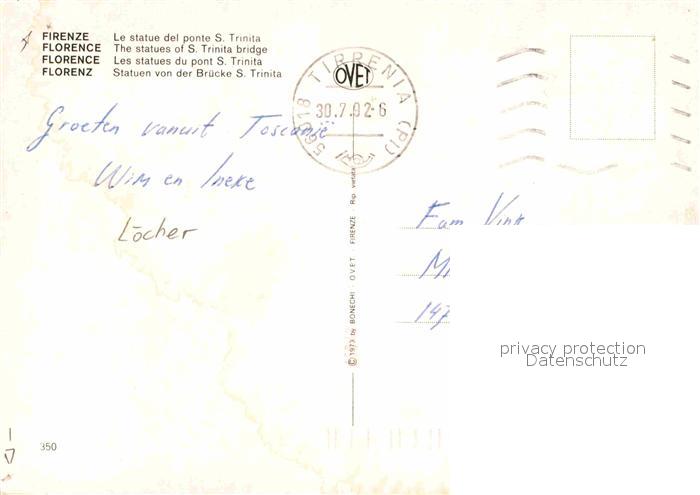 FIRENZE Le statue del ponte S. Trinita
FLORENCE The statues of S. Trinita bridge
FLORENCE Les statues du pont S. Trinita
FLORENZ Statuen von der Brücke S. Trinita
56018 TIRRENIA (PI)
OVET
30.7.92-6
Groeten vanuit Toscanie
Wim en Ineke
Löcher
Fam Vink
147
© 1973 by BONECHI · O.V.E.T. · FIRENZE · Rip. vietata
privacy protection
Datenschutz
350